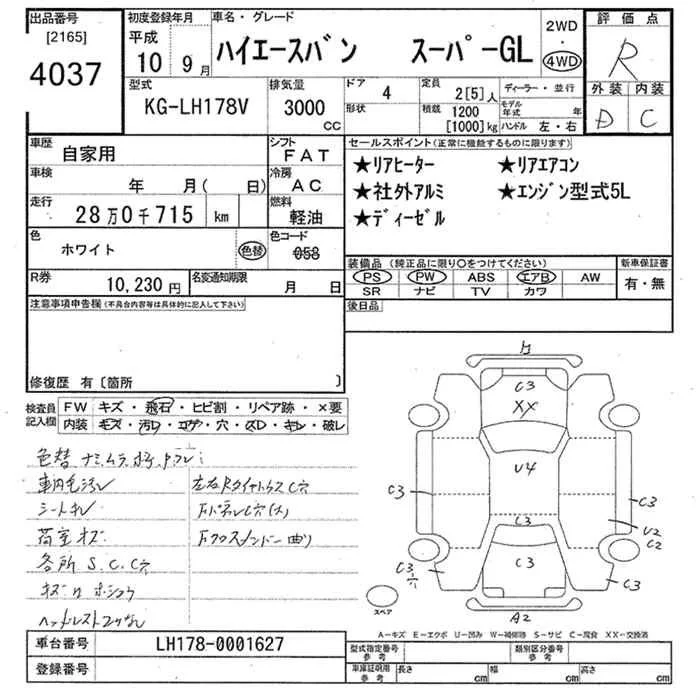 出品番号
[2165]
4037
初度登録年月
平成
10年9月
車名・グレード
ハイエースバン スーパーGL
2WD
・
4WD
評価点
R
外装 内装
D C
型式
KG-LH178V
排気量
3000
CC
ドア
4
形状
定員
2[5]人
積載 1200
[1000]kg
ディーラー・並行
モデル年式 年
ハンドル 左・右
車歴
自家用
シフト
FAT
車検
年 月( 日)
冷房
AC
走行
28万0千715 km
燃料
軽油
色
ホワイト
色替
色コード
058
R券
10,230円
名変通知期限
月 日
セールスポイント(正常に機能するものに限ります)
★リアヒーター ★リアエアコン
★社外アルミ ★エンジン型式5L
★ディーゼル
装備品(純正品に限り○をつけてください)
PS PW ABS エアB AW
SR ナビ TV カワ
新車保証書
有・無
後日品
注意事項申告欄(不具合内容等は具体的に記入して下さい)
修復歴 有〔箇所 〕
検査員記入欄
FW キズ・飛石・ヒビ割・リペア跡・×要
内装 キズ・汚レ・コゲ・穴・スレ・キレ・破レ
色替 ナミ、ムラ、ボケ、タレ
車内毛汚レ
シートキレ
荷室キズ
各所 S.C.穴
キズ有 ホショウ
ヘッドレスト2コなし
左右Rタイヤハウスc穴
FパネルC穴(大)
Fクロスメンバー曲り
C3
XX
U4
C3
C3
C3
C3
U2
C2
C3
穴
C3
A2
スペア
A-キズ E-エクボ U-凹み W-補修跡 S-サビ C-腐食 XX-交換済
車台番号
LH178-0001627
登録番号
型式指定番号
参考
類別区分番号
参考
車庫証明用
参考
長さ cm
幅 cm
高さ cm